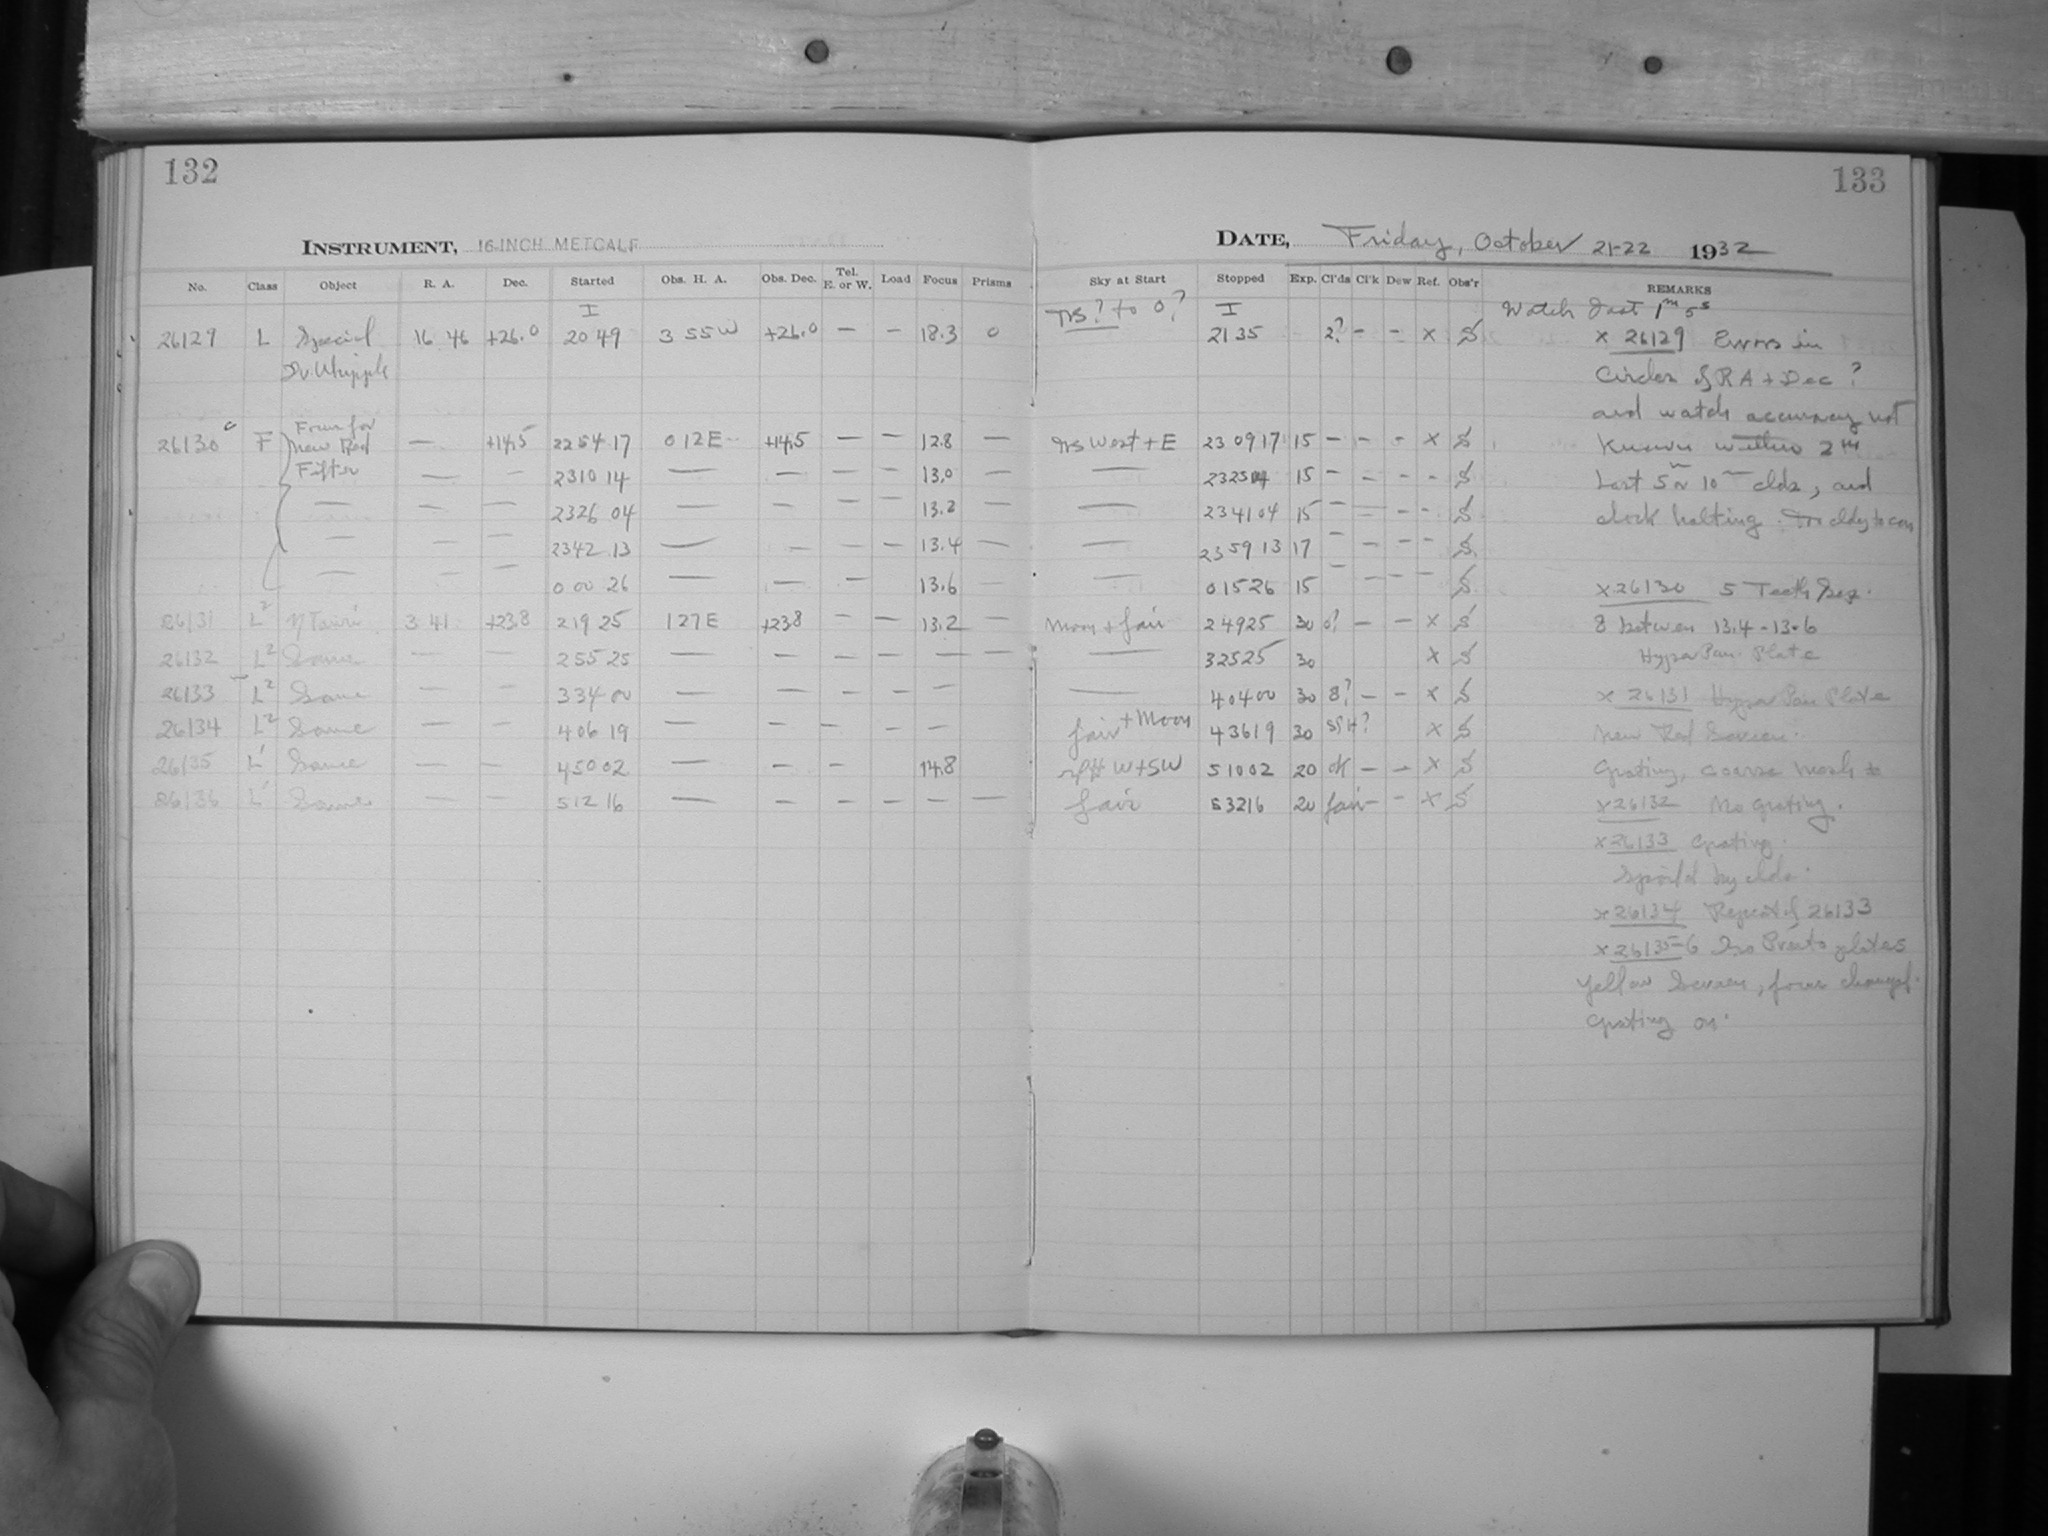 132
133
INSTRUMENT, 16-INCH METCALF
DATE, Friday, October 21-22 1932
No. Class Object R. A. Dec. Started Obs. H. A. Obs. Dec. Tel. E. or W. Load Focus Prisms Sky at Start Stopped Exp. Cl'ds Cl'k Dew Ref. Obs'r REMARKS
I I Watch Fast 1m 5s
26129 L Special 16 46 +26.0 20 49 3 55 W +26.0 — — 18.3 0 to 0? 21 35 2? - - x S x 26129 Errors in
Dr. Whipple Circles of RA + Dec ?
and watch accuracy not
26130 F Focus for New Red Filter — +14.5 22 54 17 0 12 E +14.5 — — 12.8 — West + E 23 09 17 15 - - - x S known within 2m
— — 23 10 14 — — — — 13.0 — — 23 25 15 - - - - S Last 5 or 10 clds, and
— — — 23 26 04 — — — — 13.2 — — 23 41 04 15 - - - - S clock halting. Too cldy to con
— — — 23 42 13 — — — — 13.4 — — 23 59 13 17 - - - - S
— — — 0 00 26 — — — 13.6 — — 0 15 26 15 - - - - S x 26130 5 Teeth Seq.
26131 L2 η Tauri 3 41 +23.8 2 19 25 1 27 E +23.8 — — 13.2 — Moon + fair 2 49 25 30 0? — — x S 8 between 13.4 - 13.6
26132 L2 Same — — 2 55 25 — — — — — — — 3 25 25 30 x S Hyper Pan Plate
26133 L2 Same — — 3 34 00 — — — — — — 4 04 00 30 8? - - x S x 26131 Hyper Pan Plate
26134 L2 Same — — 4 06 19 — — — — — fair + Moon 4 36 19 30 x S New Red Screen.
26135 L' Same — — 4 50 02 — — — 14.8 W + SW 5 10 02 20 ok — — x S Grating, coarse mesh
26136 L' Same — — 5 12 16 — — — — — — fair 5 32 16 20 fair - - x S x 26132 No grating.
x 26133 Grating.
Spoiled by clds.
x 26134 Repeat of 26133
x 26135-6 Iso Presto plates
Yellow Screen, focus changed.
Grating on.